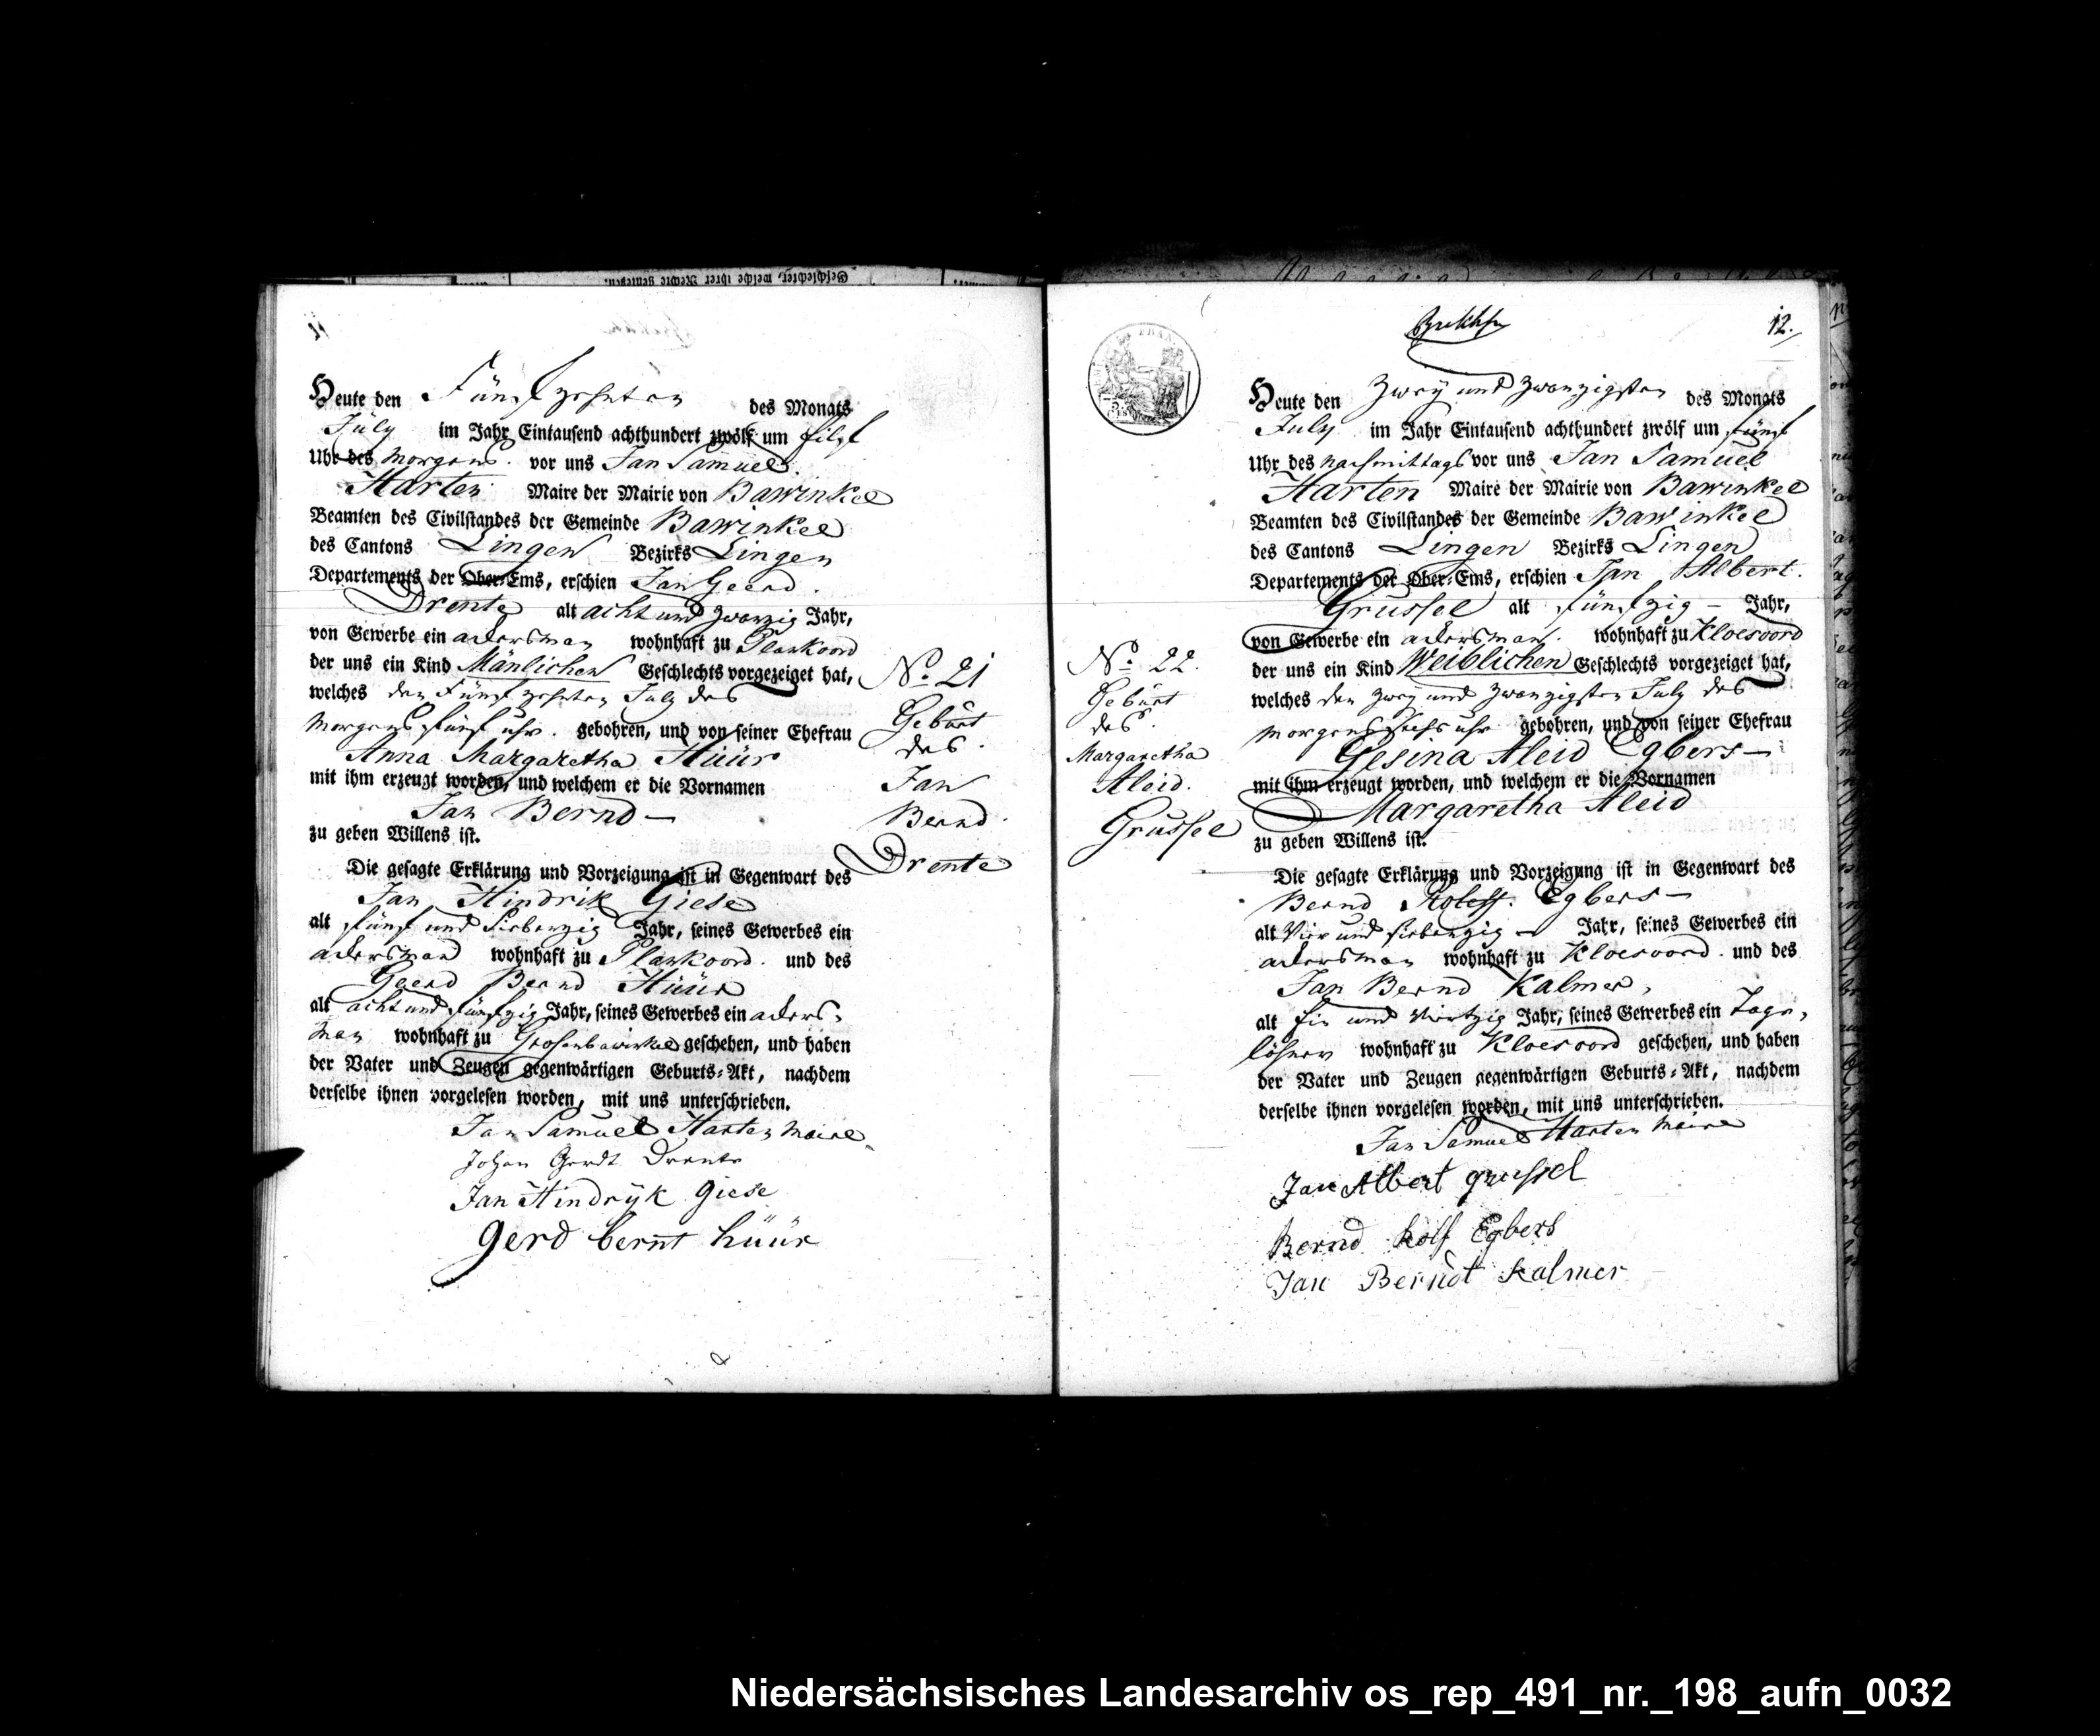 Heute den Fünfzehnten des Monats
July im Jahr Eintausend achthundert zwölf um Eilf
Uhr des Morgens. vor uns Jan Samuel
Harten Maire der Mairie von Bawinkel
Beamten des Civilstandes der Gemeinde Bawinkel
des Cantons Lingen Bezirks Lingen
Departements der Ober-Ems, erschien Jan Geerd.
Drente alt acht und zwanzig Jahr,
von Gewerbe ein ackersman wohnhaft zu Plankoord
der uns ein Kind Mänlichen Geschlechts vorgezeiget hat,
welches den Fünfzehnten July des
Morgens fünf uhr. gebohren, und von seiner Ehefrau
Anna Margaretha Hüür
mit ihm erzeugt worden, und welchem er die Vornamen
Jan Bernd —
zu geben Willens ist.
Die gesagte Erklärung und Vorzeigung ist in Gegenwart des
Jan Hindrik Giese
alt fünf und Siebenzig Jahr, seines Gewerbes ein
ackersman wohnhaft zu Plankoord. und des
Geerd Bernd Hüür
alt acht und fünfzig Jahr, seines Gewerbes ein ackers-
man wohnhaft zu Grosenbawinkel geschehen, und haben
der Vater und Zeugen gegenwärtigen Geburts-Akt, nachdem
derselbe ihnen vorgelesen worden, mit uns unterschrieben.
Jan Samuel Harten Maire
Johan Gerdt Drente
Jan Hindryk Giese
Gerd bernt hüür
No. 21
Geburt
des.
Jan
Bernd.
Drente
12.
Heute den Zwey und Zwanzigsten des Monats
July im Jahr Eintausend achthundert zwölf um fünf
Uhr des Nachmittags vor uns Jan Samuel
Harten Maire der Mairie von Bawinkel
Beamten des Civilstandes der Gemeinde Bawinkel
des Cantons Lingen Bezirks Lingen
Departements der Ober-Ems, erschien Jan Albert.
Grussel alt fünfzig — Jahr,
von Gewerbe ein ackersman. wohnhaft zu Kloesoord
der uns ein Kind Weiblichen Geschlechts vorgezeiget hat,
welches den Zwey und Zwanzigsten July des
Morgens sechs uhr gebohren, und von seiner Ehefrau
Gesina Aleid Egbers —
mit ihm erzeugt worden, und welchem er die Vornamen
Margaretha Aleid
zu geben Willens ist.
Die gesagte Erklärung und Vorzeigung ist in Gegenwart des
Bernd Roleff. Egbers —
alt Vier und siebenzig — Jahr, seines Gewerbes ein
ackersman wohnhaft zu Kloesoord. und des
Jan Bernd Kalmer,
alt Ein und Viertzig Jahr, seines Gewerbes ein Tage-
löhner wohnhaft zu Kloesoord geschehen, und haben
der Vater und Zeugen gegenwärtigen Geburts-Akt, nachdem
derselbe ihnen vorgelesen worden, mit uns unterschrieben.
Jan Samuel Harten Maire
Jan Albert grussel
Bernd Rolf Egbers
Jan Berndt Kalmer
No. 22.
Geburt
des.
Margaretha
Aleid.
Grussel
Niedersächsisches Landesarchiv os_rep_491_nr._198_aufn_0032